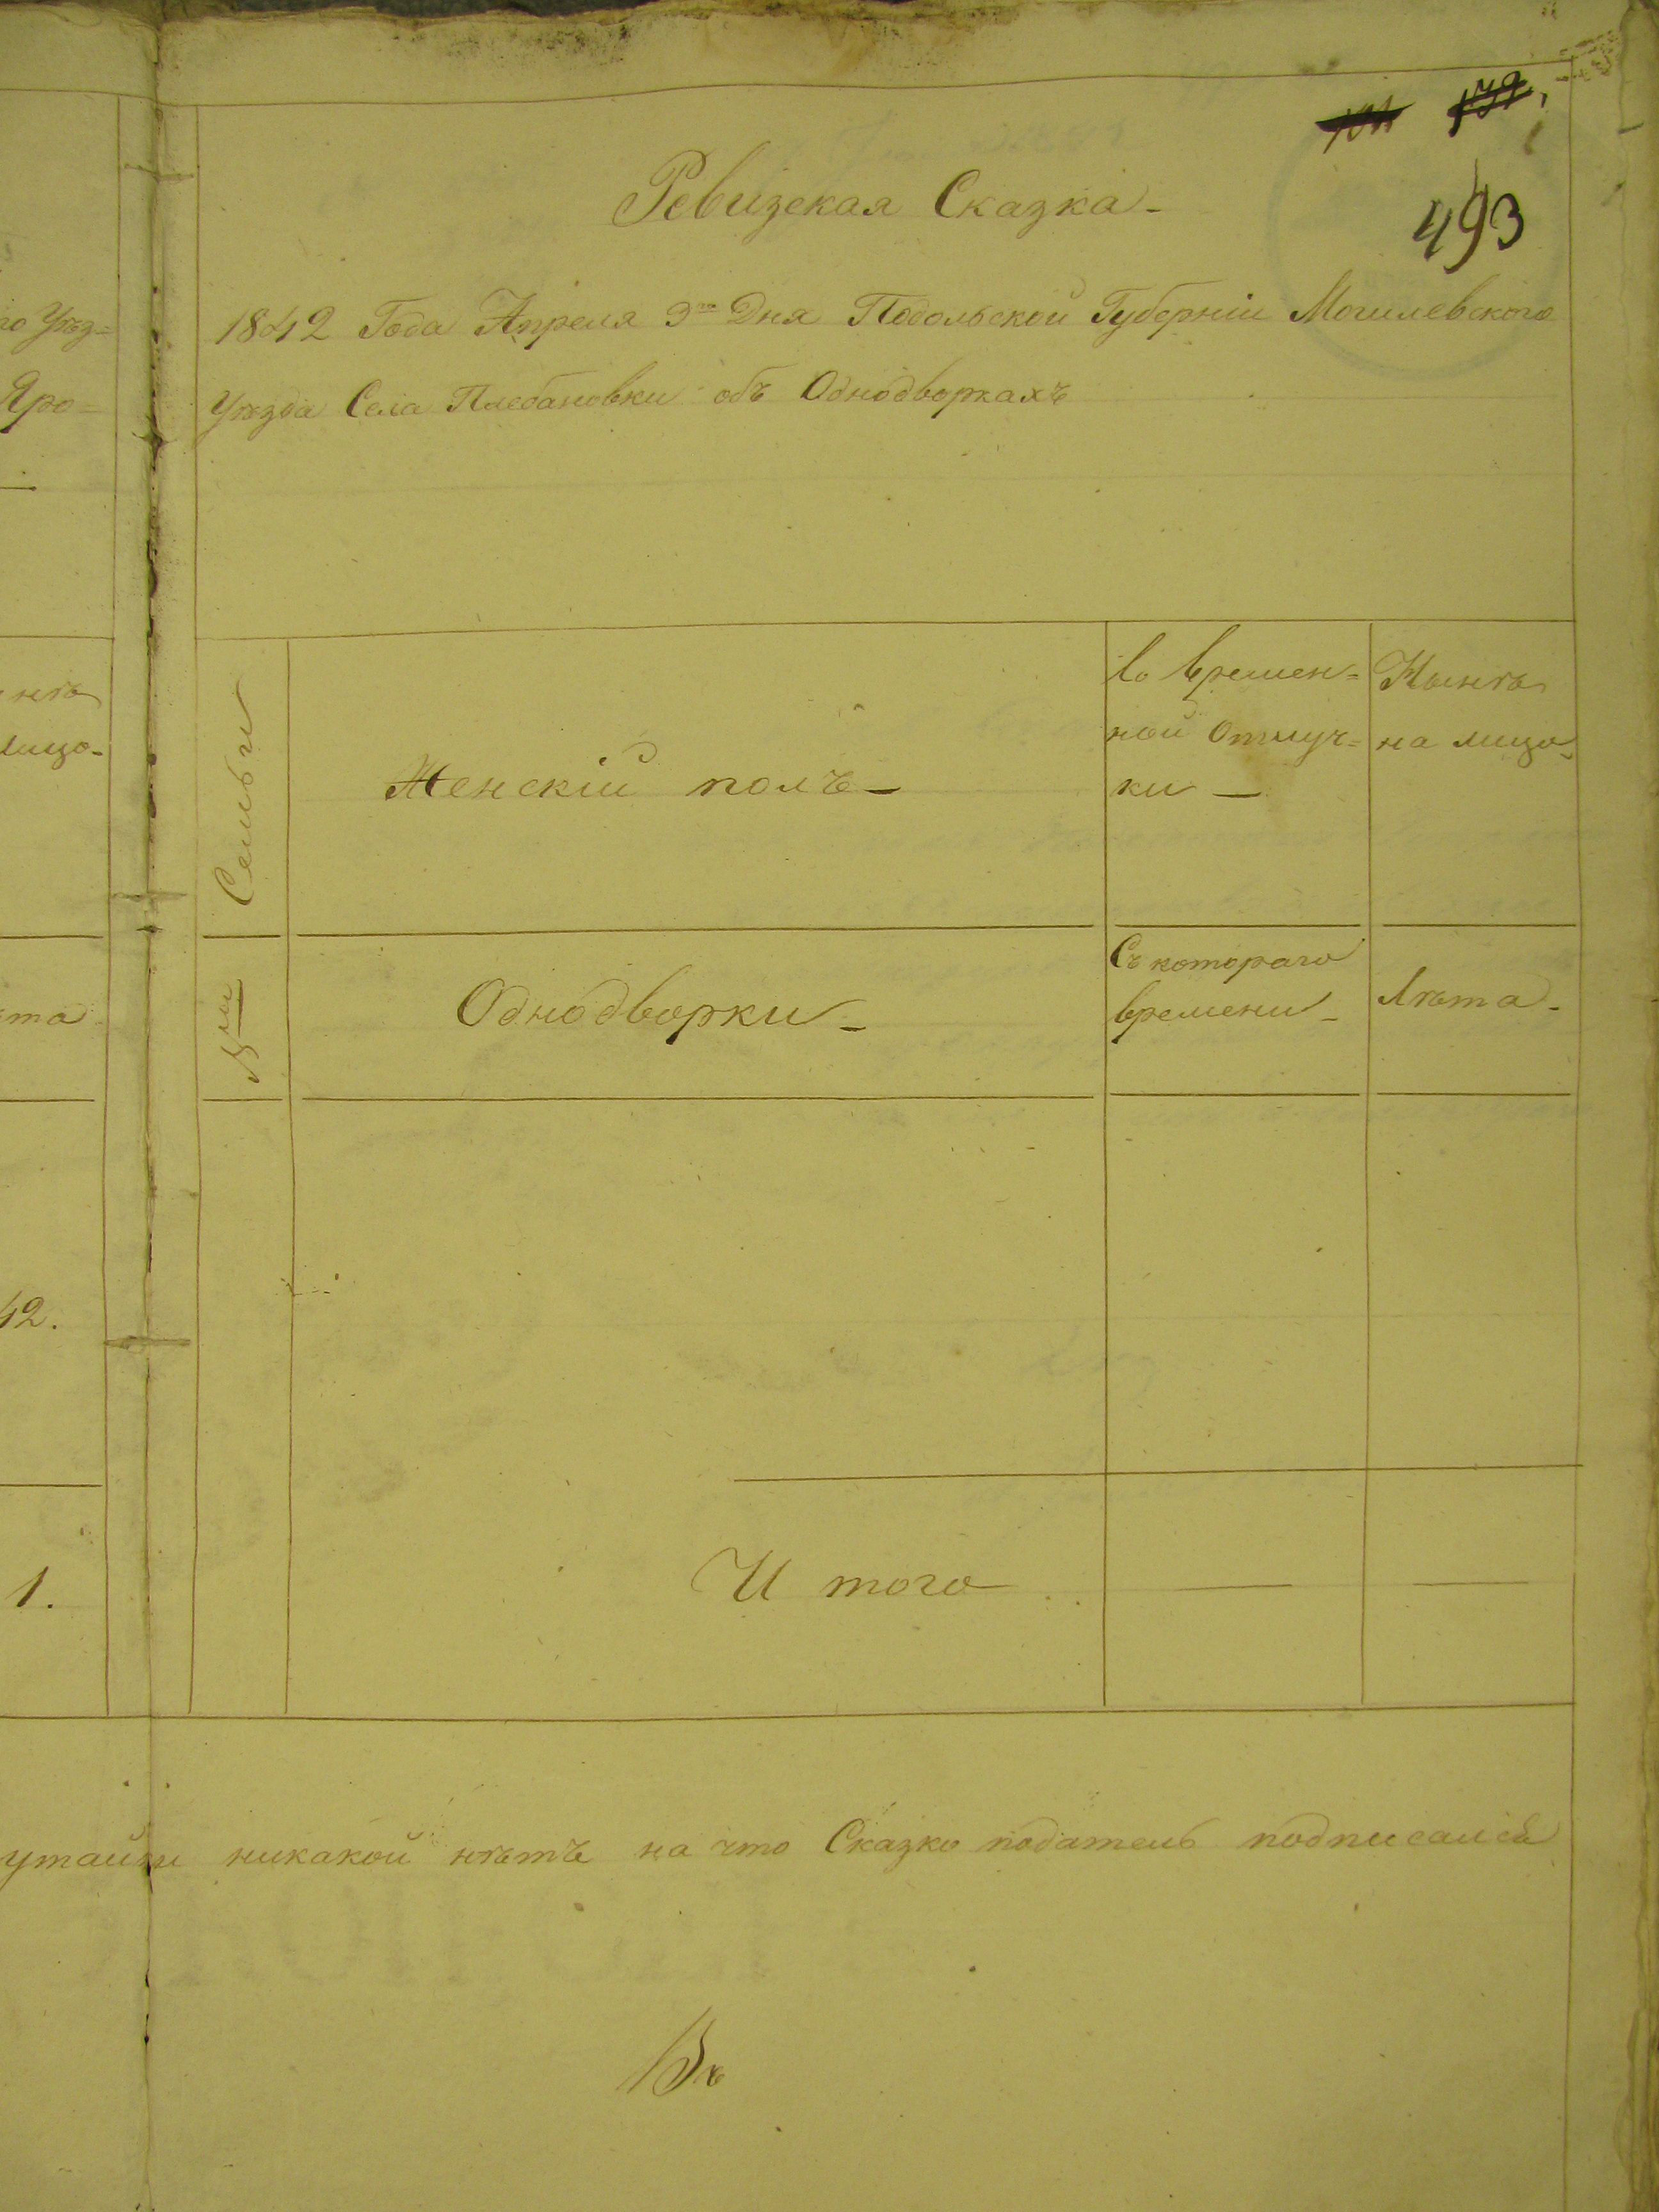 179
493
Ревизская Сказка -
1842 Года Апреля 9го Дня Подольской Губерніи Могилевского
Уѣзда Села Плебановки объ Однодворкахъ
го Уѣз=
Яро=
нѣ
лицо -
та
42.
1.
№ми Семьи
Женскій полъ -
во времен=
ной отлуч=
ки -
Нынѣ
на лицо -
Однодворки -
Съ котораго
времени -
Лѣта -
И того
утайки никакой нѣтъ на что Сказко податель подписался